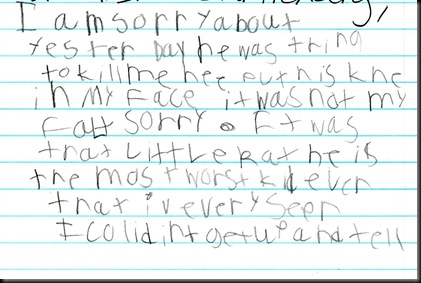 I am sorry about
yester Day he was tring
to kill me hee put his kne
in my Face it was not my
Fault sorry. It was
that Little Rat he is
the most worst kid ever
that i'v every seen
I colid int get up and tell